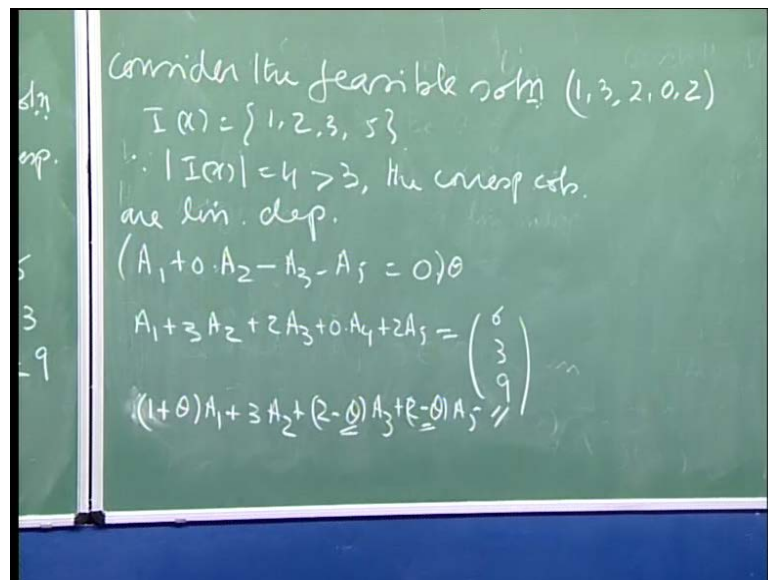 soln
esp.
3
9
Consider the feasible soln (1, 3, 2, 0, 2)
I(x) = {1, 2, 3, 5}
∵ |I(x)| = 4 > 3, the corresp cols.
are lin. dep.
(A₁ + 0·A₂ − A₃ − A₅ = 0)θ
A₁ + 3A₂ + 2A₃ + 0·A₄ + 2A₅ = (6 3 9)
(1+θ)A₁ + 3A₂ + (2−θ)A₃ + (2−θ)A₅ = "